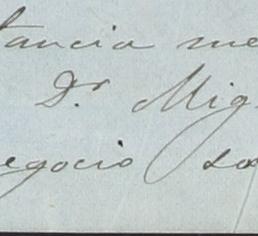 tancia me
Dr Mig
egocio so